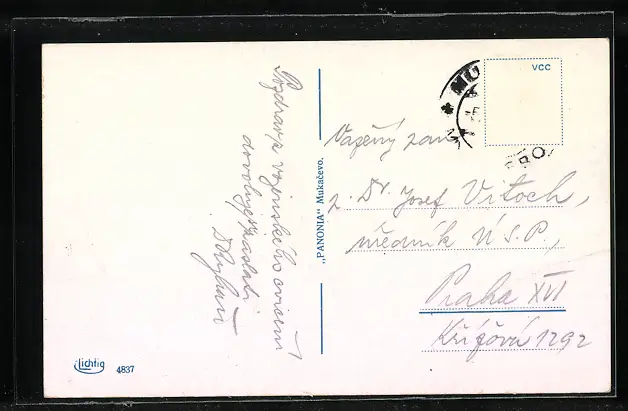 Pozdrav z vojenského cvičení
dovoluje zaslati
„PANONIA" Mukačevo.
VCC
MU
Vážený pan
p. Dr. Josef Vitoch,
úředník Ú.S.P.,
Praha XVI
Křížová 1292
Lichtig 4837